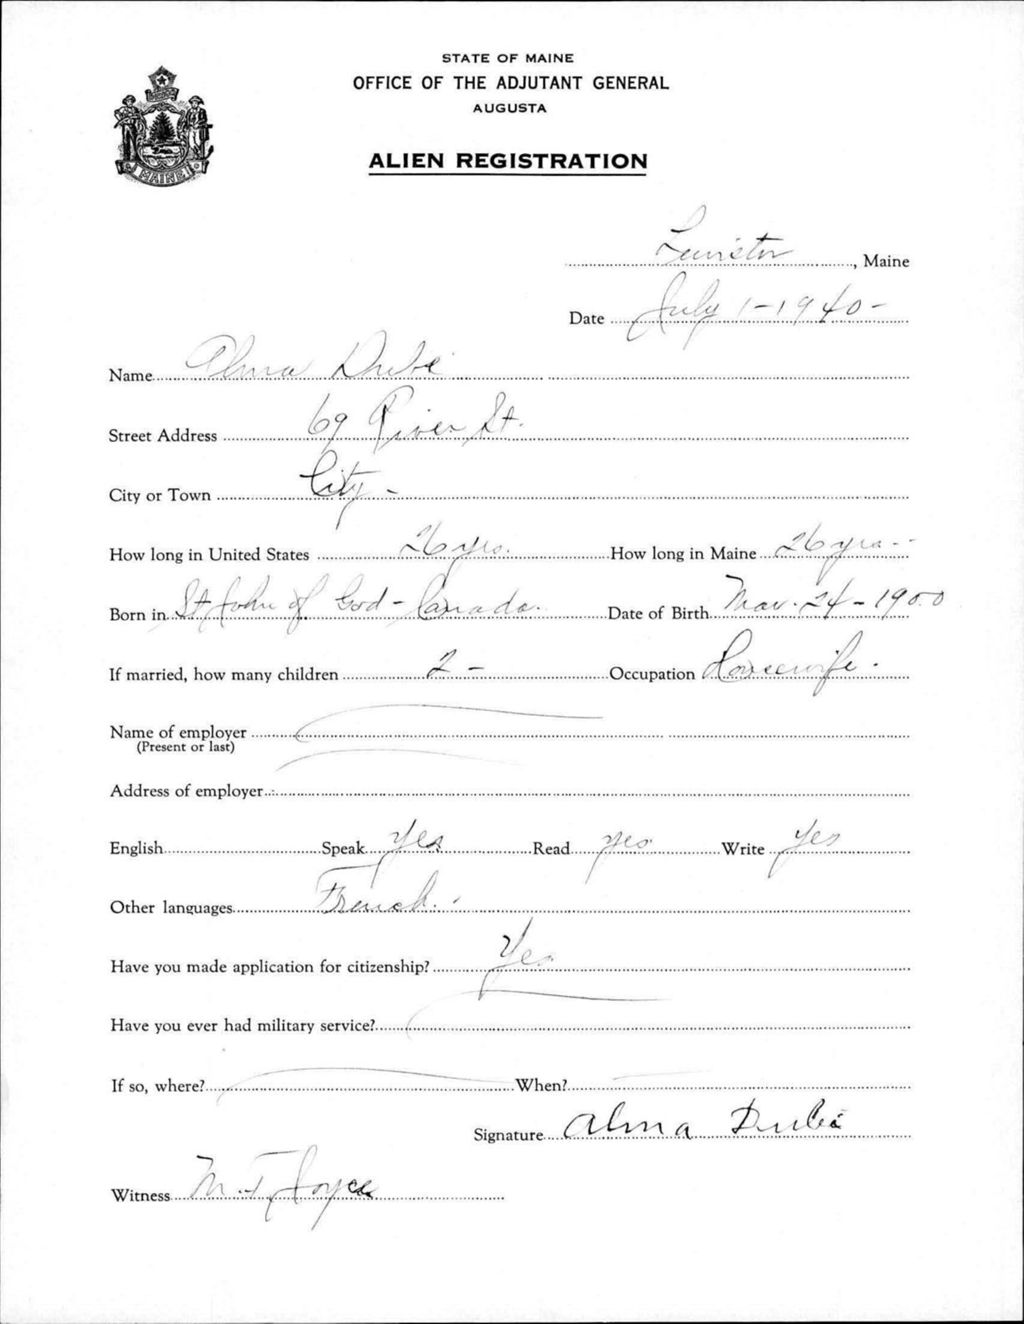 STATE OF MAINE
OFFICE OF THE ADJUTANT GENERAL
AUGUSTA
ALIEN REGISTRATION
MAINE
Lewiston, Maine
Date July 1-1940-
Name Alma Dubé
Street Address 69 River St.
City or Town City -
How long in United States 26 yrs. How long in Maine 26 yrs --
Born in St John of God - Canada. Date of Birth Mar. 24 - 1900
If married, how many children 2 - Occupation Housewife.
Name of employer
(Present or last)
Address of employer
English Speak Yes Read yes Write Yes
Other languages French.
Have you made application for citizenship? Yes
Have you ever had military service?
If so, where? When?
Signature Alma Dubé
Witness M. T. Joyce